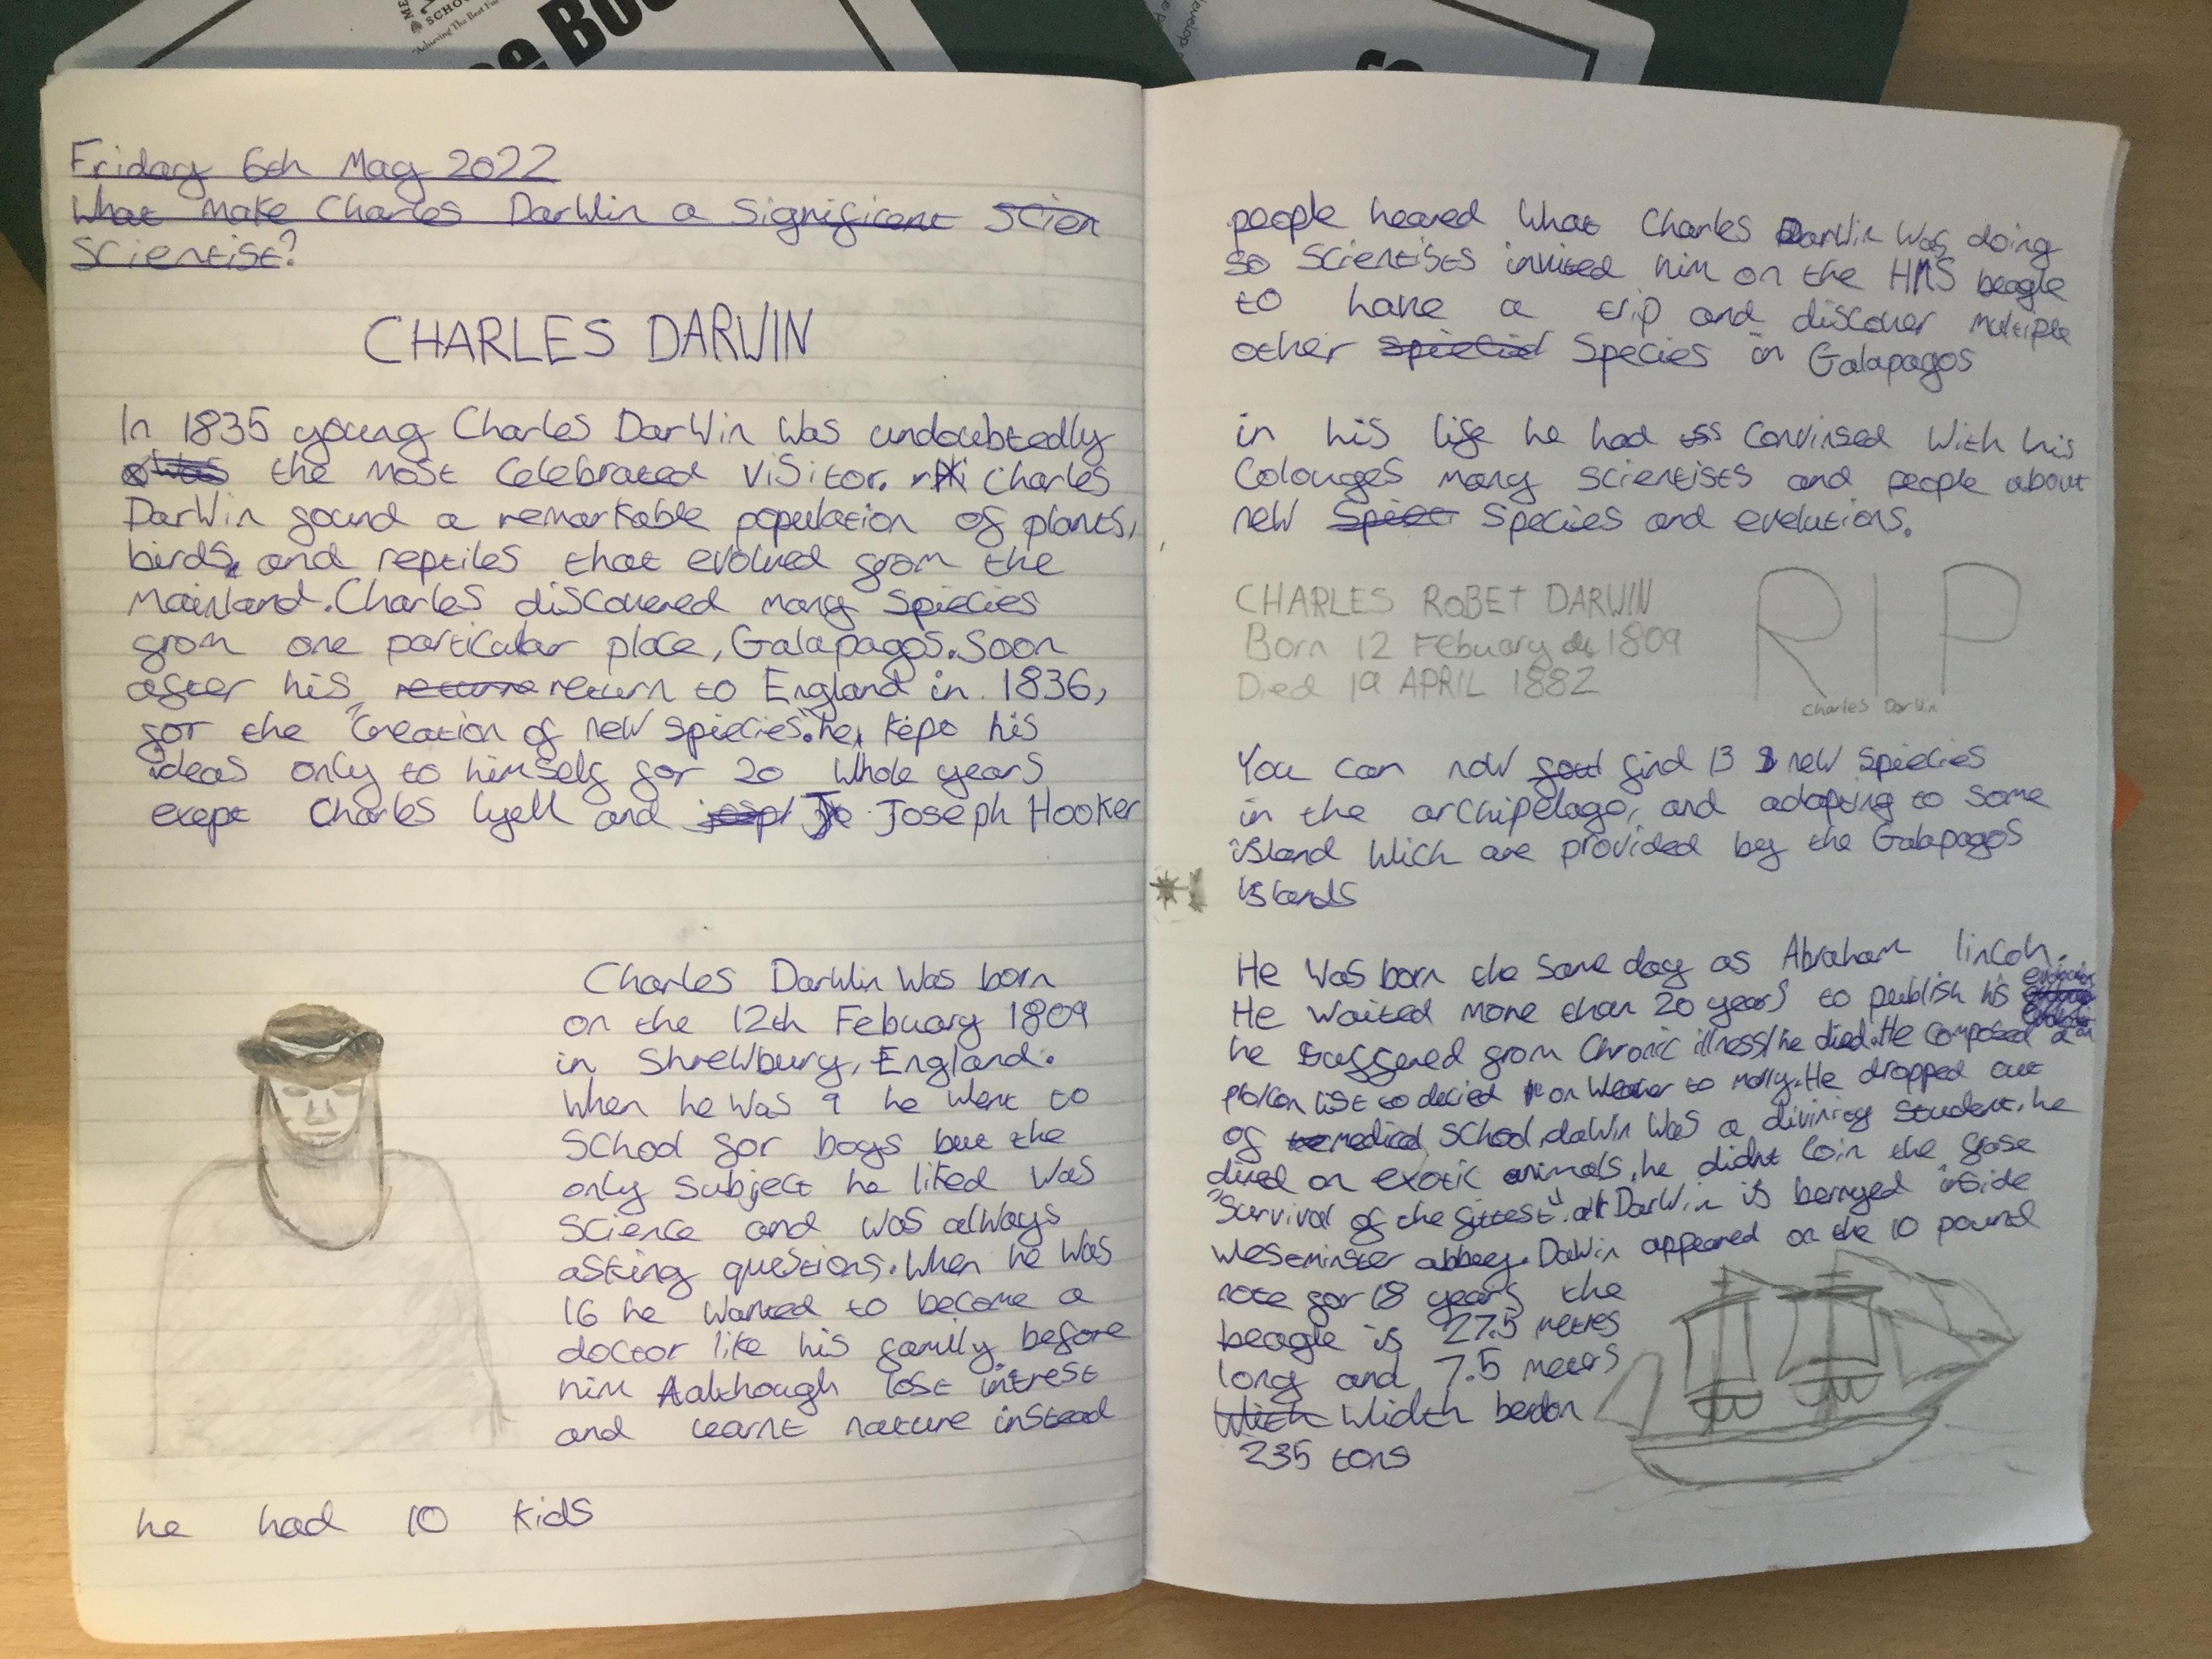 SCHOO
"Achieving The Best Fu
e Bo
evelop
Friday 6th May 2022
What make Charles Darwin a Significent Scien
Scientist?
CHARLES DARWIN
In 1835 young Charles Darwin was undoubtedly
was the most celebrated visitor. Charles
Darwin found a remarkable population of plants,
birds, and reptiles that evolved from the
Mainland. Charles discovered many spiecies
from one particular place, Galapagos. Soon
after his returne return to England in 1836,
for the "Creation of new spiecies". he, kept his
ideas only to himself for 20 whole years
exept Charles lyell and josepl Jo Joseph Hooker
Charles Darwin was born
on the 12th Febuary 1809
in Shrewbury, England.
When he was 9 he went to
School for boys but the
only subject he liked was
science and was always
asking questions. When he was
16 he wanted to become a
doctor like his family before
him Aalthough lost intrest
and learnt nature instead
he had 10 kids
people heared what Charles Darwin was doing
so scientists invited him on the HMS beagle
to have a trip and discover multiple
other spiecies Species in Galapagos
in his life he had convinsed with his
Colouges many scientists and people about
new Spiec Species and evelutions.
CHARLES ROBET DARWIN
Born 12 Febuary 1809
Died 19 APRIL 1882
RIP
Charles Darwin
You can now find 13 new spiecies
in the archipelago, and adapting to some
island wich are provided by the Galapagos
islands
He was born the same day as Abraham lincoln.
He waited more than 20 years to publish his
he suffered from Chronic illness/he died. He composed a
pro/con list to decied on weather to marry. He dropped out
of medical school. dawin was a divinity student. he
dined on exotic animals. he didnt coin the frase
"Survival of the fittest". Darwin is berryed inside
Wesminster abbey. Dawin appeared on the 10 pound
note for 18 years the
beagle is 27.5 metres
long and 7.5 meters
With Width
235 tons